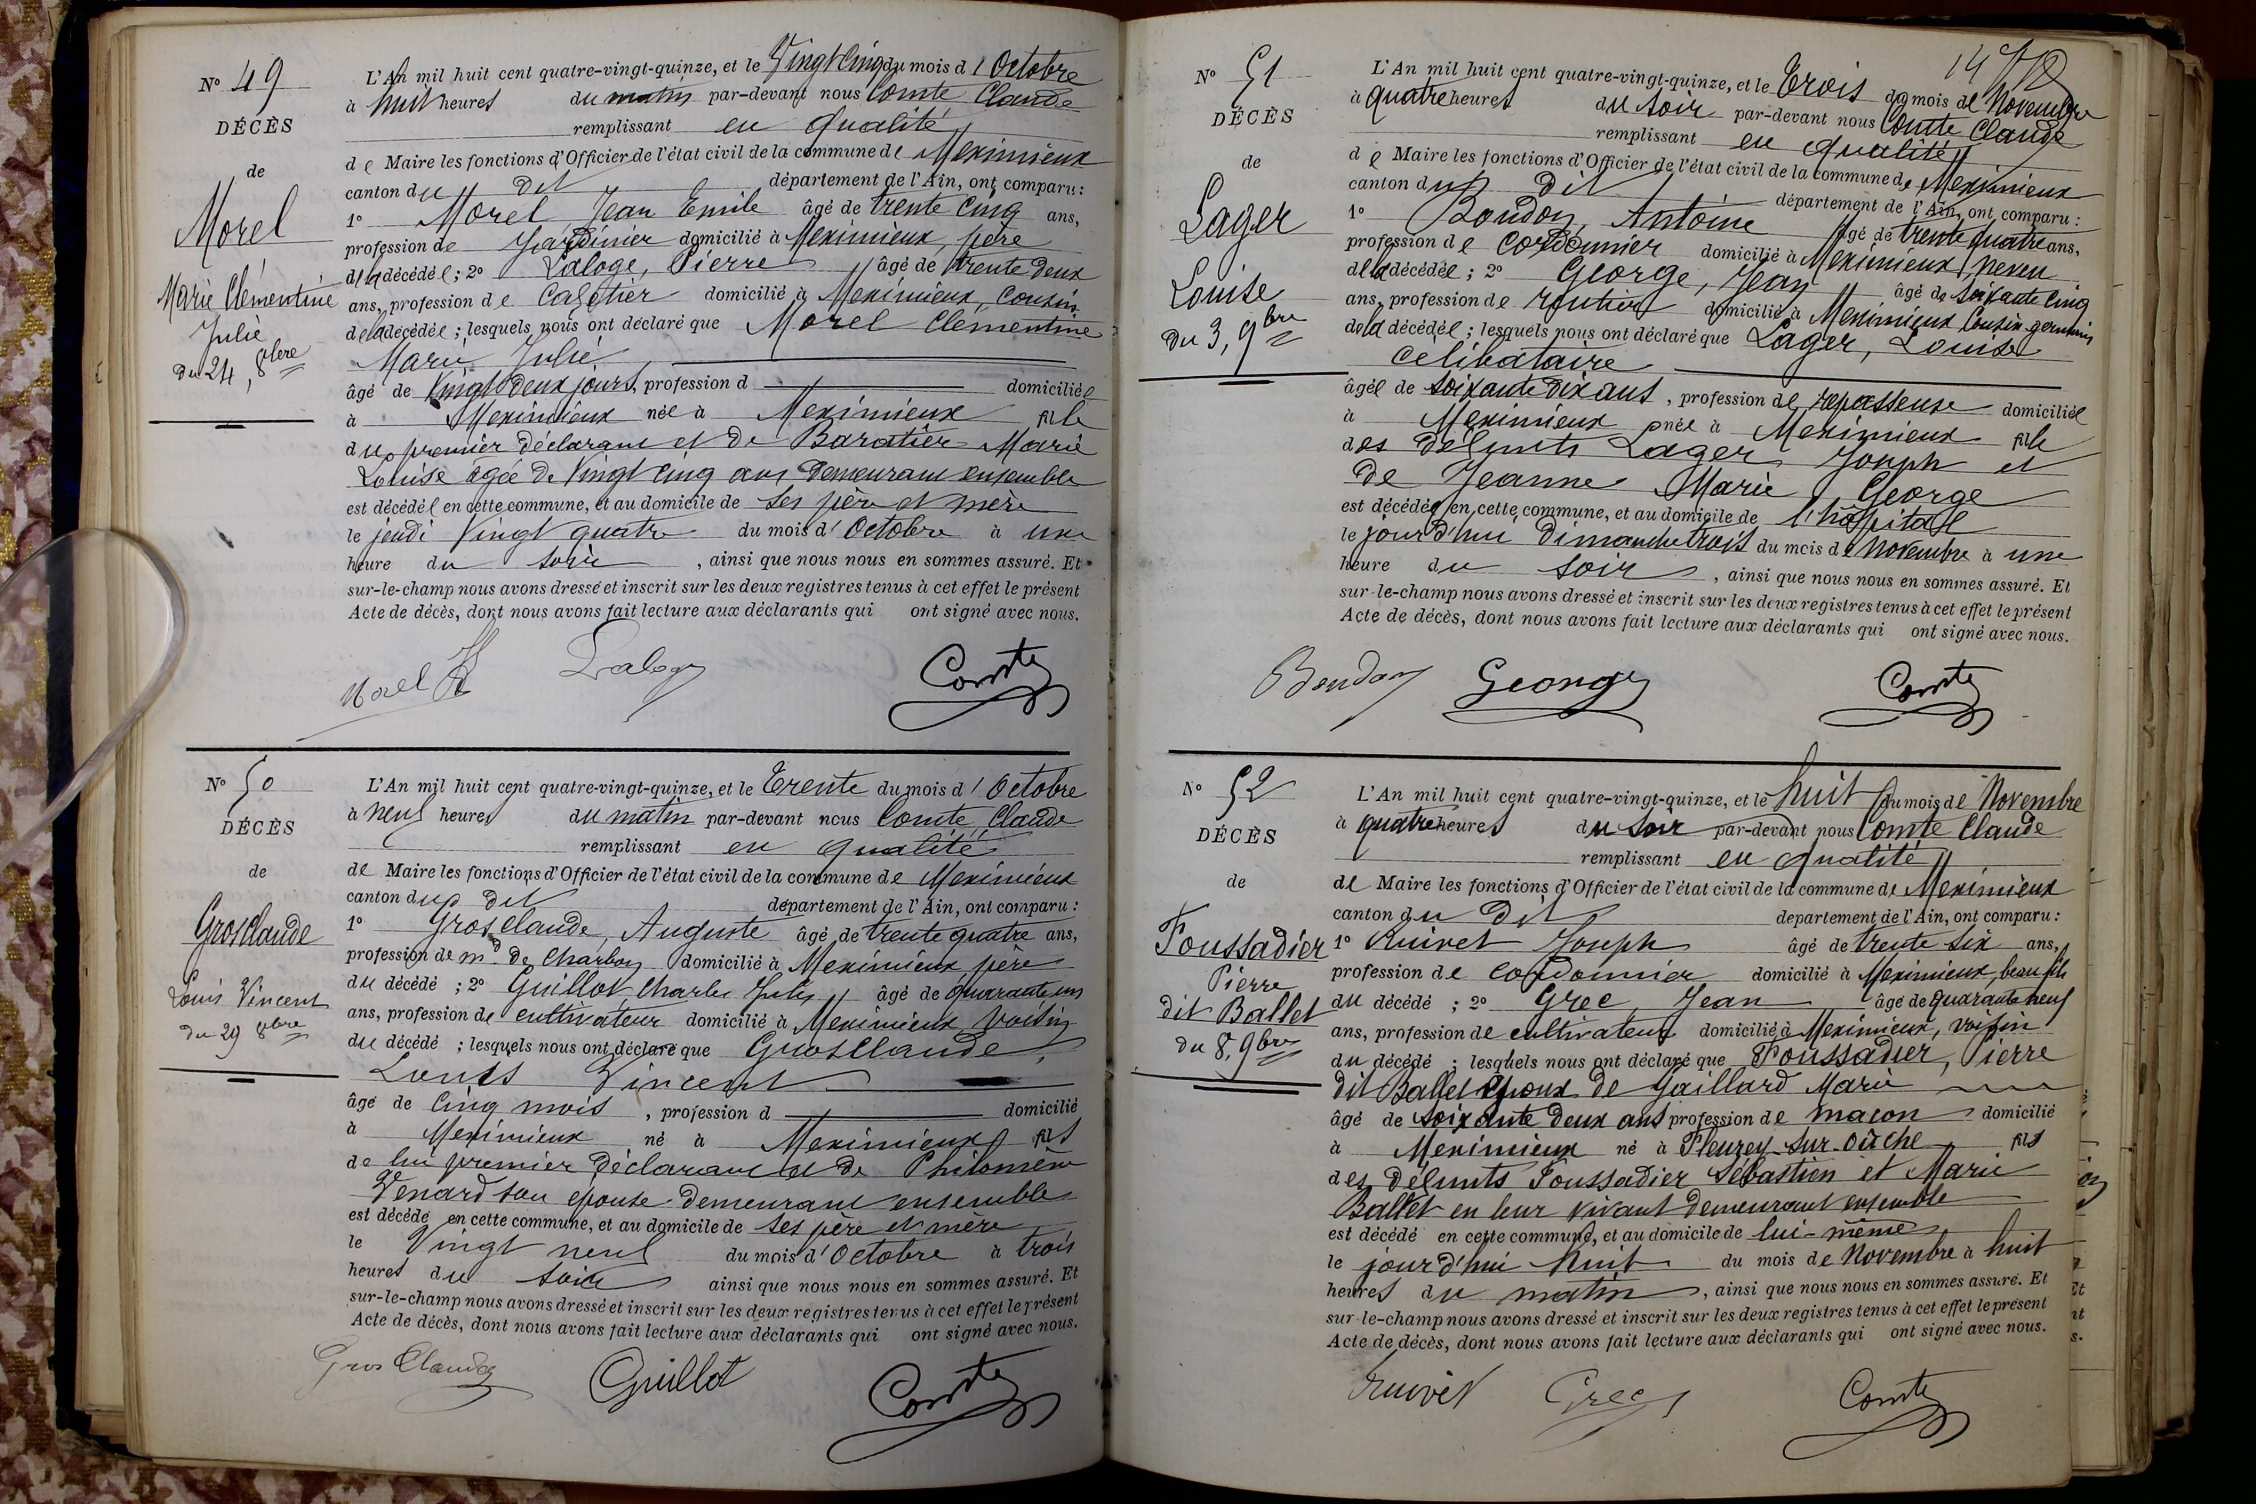 N° 49
DÉCÈS
de
Morel
Marie Clémentine
Julie
du 24, 8bere
L'An mil huit cent quatre-vingt-quinze, et le Vingt Cinq du mois d' Octobre
à huit heures du matin par-devant nous Comte Claude
remplissant en qualité
de Maire les fonctions d'Officier de l'état civil de la commune de Meximieux
canton du dit département de l'Ain, ont comparu :
1° Morel Jean Emile âgé de trente cinq ans,
profession de Jardinier domicilié à Meximieux, père
de la décédée ; 2° Laloge, Pierre âgé de trente deux
ans, profession de Cafetier domicilié à Meximieux, Cousin
de la décédée ; lesquels nous ont déclaré que Morel Clémentine
Marie Julie
âgé de Vingt deux jours, profession d domiciliée
à Meximieux née à Meximieux fille
du premier déclarant et de Baratier Marie
Louise âgée de Vingt cinq ans demeurant ensemble
est décédée en cette commune, et au domicile de ses père et mère
le jeudi Vingt quatre du mois d' Octobre à une
heure du soir , ainsi que nous nous en sommes assuré. Et
sur-le-champ nous avons dressé et inscrit sur les deux registres tenus à cet effet le présent
Acte de décès, dont nous avons fait lecture aux déclarants qui ont signé avec nous.
Laloge Comte
N° 50
DÉCÈS
de
Grosclaude
Louis Vincent
du 29 8bre
L'An mil huit cent quatre-vingt-quinze, et le Trente du mois d' Octobre
à neuf heures du matin par-devant nous Comte Claude
remplissant en qualité
de Maire les fonctions d'Officier de l'état civil de la commune de Meximieux
canton du dit département de l'Ain, ont comparu :
1° Grosclaude, Auguste âgé de trente quatre ans,
profession de md de Charbon domicilié à Meximieux père
du décédé ; 2° Guillot Charles Jules âgé de quarante un
ans, profession de cultivateur domicilié à Meximieux voisin
du décédé ; lesquels nous ont déclaré que Grosclaude,
Louis Vincent
âgé de Cinq mois , profession d domicilié
à Meximieux né à Meximieux fils
de lui premier déclarant et de Philomène
Venard son épouse demeurant ensemble
est décédé en cette commune, et au domicile de ses père et mère
le Vingt neuf du mois d' Octobre à trois
heures du soir ainsi que nous nous en sommes assuré. Et
sur-le-champ nous avons dressé et inscrit sur les deux registres tenus à cet effet le présent
Acte de décès, dont nous avons fait lecture aux déclarants qui ont signé avec nous.
Gros Claude Guillot Comte
14
N° 51
DÉCÈS
de
Lager
Louise
du 3, 9bre
L'An mil huit cent quatre-vingt-quinze, et le Trois du mois de Novembre
à quatre heures du soir par-devant nous Comte Claude
remplissant en qualité
de Maire les fonctions d'Officier de l'état civil de la commune de Meximieux
canton du dit département de l'Ain, ont comparu :
1° Boudon, Antoine âgé de trente quatre ans,
profession de cordonnier domicilié à Meximieux, neveu
de la décédée ; 2° George, Jean âgé de soixante cinq
ans, profession de rentier domicilié à Meximieux Cousin germain
de la décédée ; lesquels nous ont déclaré que Lager, Louise
célibataire
âgée de soixante dix ans , profession de repasseuse domiciliée
à Meximieux née à Meximieux fille
des défunts Lager Joseph et
de Jeanne Marie George
est décédée en cette commune, et au domicile de l'hôpital
le jourd'hui Dimanche trois du mois de Novembre à une
heure du soir , ainsi que nous nous en sommes assuré. Et
sur-le-champ nous avons dressé et inscrit sur les deux registres tenus à cet effet le présent
Acte de décès, dont nous avons fait lecture aux déclarants qui ont signé avec nous.
Boudon George Comte
N° 52
DÉCÈS
de
Foussadier
Pierre
dit Ballet
du 8, 9bre
L'An mil huit cent quatre-vingt-quinze, et le huit du mois de Novembre
à quatre heures du soir par-devant nous Comte Claude
remplissant en qualité
de Maire les fonctions d'Officier de l'état civil de la commune de Meximieux
canton du dit département de l'Ain, ont comparu :
1° Ruivet Joseph âgé de trente six ans,
profession de cordonnier domicilié à Meximieux, beau fils
du décédé ; 2° Grec Jean âgé de quarante neuf
ans, profession de cultivateur domicilié à Meximieux, voisin
du décédé ; lesquels nous ont déclaré que Foussadier, Pierre
dit Ballet époux de Gaillard Marie
âgé de soixante deux ans profession de maçon domicilié
à Meximieux né à Fleurey-sur-Ouche fils
des défunts Foussadier Sébastien et Marie
Ballet en leur vivant demeurant ensemble
est décédé en cette commune, et au domicile de lui-même
le jourd'hui huit du mois de Novembre à huit
heures du matin , ainsi que nous nous en sommes assuré. Et
sur-le-champ nous avons dressé et inscrit sur les deux registres tenus à cet effet le présent
Acte de décès, dont nous avons fait lecture aux déclarants qui ont signé avec nous.
Ruivet Grec Comte